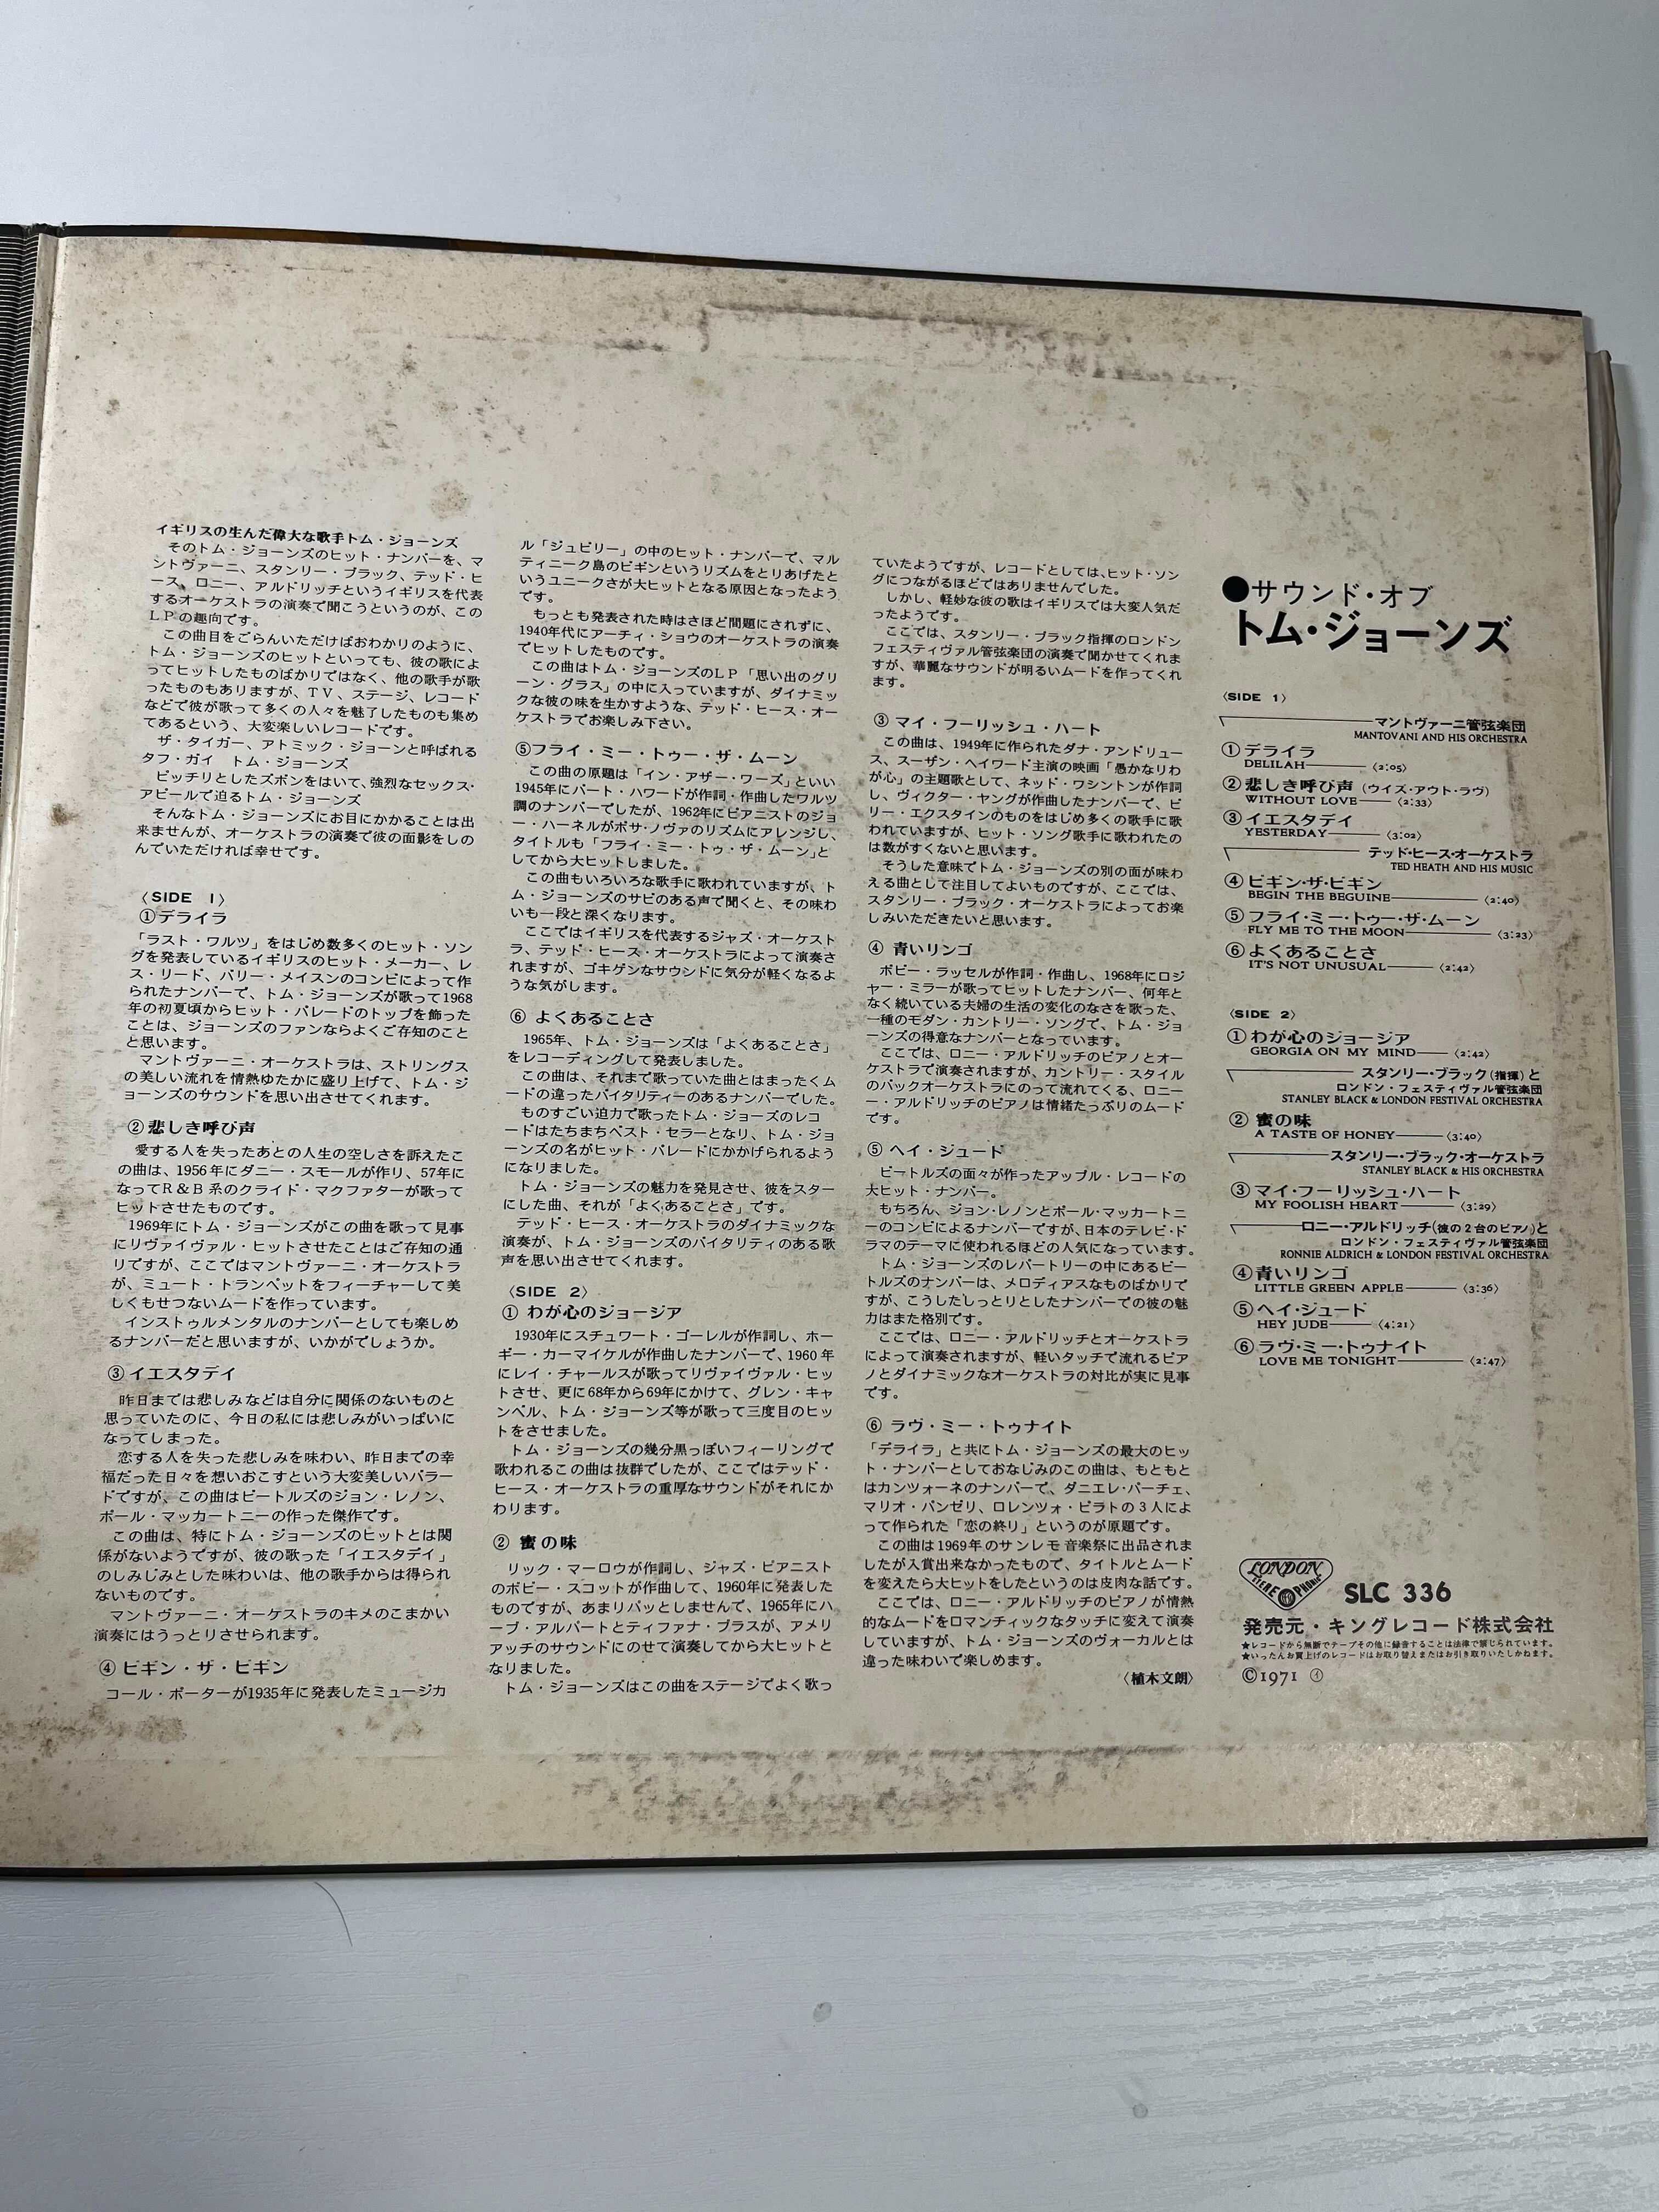 イギリスの生んだ偉大な歌手トム・ジョーンズ
そのトム・ジョーンズのヒット・ナンバーを、マ
ントヴァーニ、スタンリー・ブラック、テッド・ヒ
ース、ロニー、アルドリッチというイギリスを代表
するオーケストラの演奏で聞こうというのが、この
ＬＰの趣向です。
この曲目をごらんいただけばおわかりのように、
トム・ジョーンズのヒットといっても、彼の歌によ
ってヒットしたものばかりではなく、他の歌手が歌
ったものもありますが、ＴＶ、ステージ、レコード
などで彼が歌って多くの人々を魅了したものも集め
てあるという、大変楽しいレコードです。
ザ・タイガー、アトミック・ジョーンと呼ばれる
タフ・ガイ　トム・ジョーンズ
ピッチリとしたズボンをはいて、強烈なセックス・
アピールで迫るトム・ジョーンズ
そんなトム・ジョーンズにお目にかかることは出
来ませんが、オーケストラの演奏で彼の面影をしの
んでいただければ幸せです。
〈SIDE　1〉
①デライラ
「ラスト・ワルツ」をはじめ数多くのヒット・ソン
グを発表しているイギリスのヒット・メーカー、レ
ス・リード、バリー・メイスンのコンビによって作
られたナンバーで、トム・ジョーンズが歌って1968
年の初夏頃からヒット・パレードのトップを飾った
ことは、ジョーンズのファンならよくご存知のこと
と思います。
マントヴァーニ・オーケストラは、ストリングス
の美しい流れを情熱ゆたかに盛り上げて、トム・ジ
ョーンズのサウンドを思い出させてくれます。
②悲しき呼び声
愛する人を失ったあとの人生の空しさを訴えたこ
の曲は、1956年にダニー・スモールが作り、57年に
なってR＆B系のクライド・マクファターが歌って
ヒットさせたものです。
1969年にトム・ジョーンズがこの曲を歌って見事
にリヴァイヴァル・ヒットさせたことはご存知の通
リですが、ここではマントヴァーニ・オーケストラ
が、ミュート・トランペットをフィーチャーして美
しくもせつないムードを作っています。
インストゥルメンタルのナンバーとしても楽しめ
るナンバーだと思いますが、いかがでしょうか。
③イエスタデイ
昨日までは悲しみなどは自分に関係のないものと
思っていたのに、今日の私には悲しみがいっぱいに
なってしまった。
恋する人を失った悲しみを味わい、昨日までの幸
福だった日々を想いおこすという大変美しいバラー
ドですが、この曲はビートルズのジョン・レノン、
ポール・マッカートニーの作った傑作です。
この曲は、特にトム・ジョーンズのヒットとは関
係がないようですが、彼の歌った「イエスタデイ」
のしみじみとした味わいは、他の歌手からは得られ
ないものです。
マントヴァーニ・オーケストラのキメのこまかい
演奏にはうっとりさせられます。
④ビギン・ザ・ビギン
コール・ポーターが1935年に発表したミュージカ
ル「ジュビリー」の中のヒット・ナンバーで、マル
ティニーク島のビギンというリズムをとりあげたと
いうユニークさが大ヒットとなる原因となったよう
です。
もっとも発表された時はさほど問題にされずに、
1940年代にアーティ・ショウのオーケストラの演奏
でヒットしたものです。
この曲はトム・ジョーンズのＬＰ「思い出のグリ
ーン・グラス」の中に入っていますが、ダイナミッ
クな彼の味を生かすような、テッド・ヒース・オー
ケストラでお楽しみ下さい。
⑤フライ・ミー・トゥー・ザ・ムーン
この曲の原題は「イン・アザー・ワーズ」といい
1945年にバート・ハワードが作詞・作曲したワルツ
調のナンバーでしたが、1962年にピアニストのジョ
ー・ハーネルがボサ・ノヴァのリズムにアレンジし、
タイトルも「フライ・ミー・トゥ・ザ・ムーン」と
してから大ヒットしました。
この曲もいろいろな歌手に歌われていますが、ト
ム・ジョーンズのサビのある声で聞くと、その味わ
いも一段と深くなります。
ここではイギリスを代表するジャズ・オーケスト
ラ、テッド・ヒース・オーケストラによって演奏さ
れますが、ゴキゲンなサウンドに気分が軽くなるよ
うな気がします。
⑥ よくあることさ
1965年、トム・ジョーンズは「よくあることさ」
をレコーディングして発表しました。
この曲は、それまで歌っていた曲とはまったくム
ードの違ったバイタリティーのあるナンバーでした。
ものすごい迫力で歌ったトム・ジョーズのレコ
ードはたちまちベスト・セラーとなり、トム・ジョ
ーンズの名がヒット・パレードにかかげられるよう
になりました。
トム・ジョーンズの魅力を発見させ、彼をスター
にした曲、それが「よくあることさ」です。
テッド・ヒース・オーケストラのダイナミックな
演奏が、トム・ジョーンズのバイタリティのある歌
声を思い出させてくれます。
〈SIDE　2〉
① わが心のジョージア
1930年にスチュワート・ゴーレルが作詞し、ホー
ギー・カーマイケルが作曲したナンバーで、1960年
にレイ・チャールスが歌ってリヴァイヴァル・ヒッ
トさせ、更に68年から69年にかけて、グレン・キャ
ンベル、トム・ジョーンズ等が歌って三度目のヒッ
トをさせました。
トム・ジョーンズの幾分黒っぽいフィーリングで
歌われるこの曲は抜群でしたが、ここではテッド・
ヒース・オーケストラの重厚なサウンドがそれにか
わります。
② 蜜の味
リック・マーロウが作詞し、ジャズ・ピアニスト
のボビー・スコットが作曲して、1960年に発表した
ものですが、あまりパッとしませんで、1965年にハ
ーブ・アルバートとティファナ・ブラスが、アメリ
アッチのサウンドにのせて演奏してから大ヒットと
なりました。
トム・ジョーンズはこの曲をステージでよく歌っ
ていたようですが、レコードとしては、ヒット・ソン
グにつながるほどではありませんでした。
しかし、軽妙な彼の歌はイギリスでは大変人気だ
ったようです。
ここでは、スタンリー・ブラック指揮のロンドン
フェスティヴァル管弦楽団の演奏で聞かせてくれま
すが、華麗なサウンドが明るいムードを作ってくれ
ます。
③ マイ・フーリッシュ・ハート
この曲は、1949年に作られたダナ・アンドリュー
ス、スーザン・ヘイワード主演の映画「愚かなりわ
が心」の主題歌として、ネッド・ワシントンが作詞
し、ヴィクター・ヤングが作曲したナンバーで、ビ
リー・エクスタインのものをはじめ多くの歌手に歌
われていますが、ヒット・ソング歌手に歌われたの
は数がすくないと思います。
そうした意味でトム・ジョーンズの別の面が味わ
える曲として注目してよいものですが、ここでは、
スタンリー・ブラック・オーケストラによってお楽
しみいただきたいと思います。
④ 青いリンゴ
ボビー・ラッセルが作詞・作曲し、1968年にロジ
ャー・ミラーが歌ってヒットしたナンバー、何年と
なく続いている夫婦の生活の変化のなさを歌った、
一種のモダン・カントリー・ソングで、トム・ジョ
ーンズの得意なナンバーとなっています。
ここでは、ロニー・アルドリッチのピアノとオー
ケストラで演奏されますが、カントリー・スタイル
のバックオーケストラにのって流れてくる、ロニー
ー・アルドリッチのピアノは情緒たっぷりのムード
です。
⑤ ヘイ・ジュード
ビートルズの面々が作ったアップル・レコードの
大ヒット・ナンバー。
もちろん、ジョン・レノンとポール・マッカートニ
ーのコンビによるナンバーですが、日本のテレビ・ド
ラマのテーマに使われるほどの人気になっています。
トム・ジョーンズのレパートリーの中にあるビー
トルズのナンバーは、メロディアスなものばかりで
すが、こうしたしっとりとしたナンバーでの彼の魅
力はまた格別です。
ここでは、ロニー・アルドリッチとオーケストラ
によって演奏されますが、軽いタッチで流れるピア
ノとダイナミックなオーケストラの対比が実に見事
です。
⑥ ラヴ・ミー・トゥナイト
「デライラ」と共にトム・ジョーンズの最大のヒッ
ト・ナンバーとしておなじみのこの曲は、もともと
はカンツォーネのナンバーで、ダニエレ・パーチェ、
マリオ・パンゼリ、ロレンツォ・ピラトの3人によ
って作られた「恋の終り」というのが原題です。
この曲は1969年のサンレモ音楽祭に出品されま
したが入賞出来なかったもので、タイトルとムード
を変えたら大ヒットをしたというのは皮肉な話です。
ここでは、ロニー・アルドリッチのピアノが情熱
的なムードをロマンティックなタッチに変えて演奏
していますが、トム・ジョーンズのヴォーカルとは
違った味わいで楽しめます。
〈植木文朗〉
●サウンド・オブ
トム・ジョーンズ
〈SIDE 1〉
マントヴァーニ管弦楽団
MANTOVANI AND HIS ORCHESTRA
①デライラ
DELILAH——〈2:05〉
②悲しき呼び声（ウイズ・アウト・ラヴ）
WITHOUT LOVE——〈2:33〉
③イエスタデイ
YESTERDAY——〈3:02〉
テッド・ヒース・オーケストラ
TED HEATH AND HIS MUSIC
④ビギン・ザ・ビギン
BEGIN THE BEGUINE——〈2:40〉
⑤フライ・ミー・トゥー・ザ・ムーン
FLY ME TO THE MOON——〈3:23〉
⑥よくあることさ
IT'S NOT UNUSUAL——〈2:42〉
〈SIDE 2〉
①わが心のジョージア
GEORGIA ON MY MIND——〈2:42〉
スタンリー・ブラック（指揮）と
ロンドン・フェスティヴァル管弦楽団
STANLEY BLACK & LONDON FESTIVAL ORCHESTRA
②蜜の味
A TASTE OF HONEY——〈3:40〉
スタンリー・ブラック・オーケストラ
STANLEY BLACK & HIS ORCHESTRA
③マイ・フーリッシュ・ハート
MY FOOLISH HEART——〈3:29〉
ロニー・アルドリッチ（彼の2台のピアノ）と
ロンドン・フェスティヴァル管弦楽団
RONNIE ALDRICH & LONDON FESTIVAL ORCHESTRA
④青いリンゴ
LITTLE GREEN APPLE——〈3:36〉
⑤ヘイ・ジュード
HEY JUDE——〈4:21〉
⑥ラヴ・ミー・トゥナイト
LOVE ME TONIGHT——〈2:47〉
LONDON
STEREO PHONIC
SLC 336
発売元・キングレコード株式会社
★レコードから無断でテープその他に録音することは法律で禁じられています。
★いったんお買上げのレコードはお取り替えまたはお引き取りいたしかねます。
©1971 ㋑